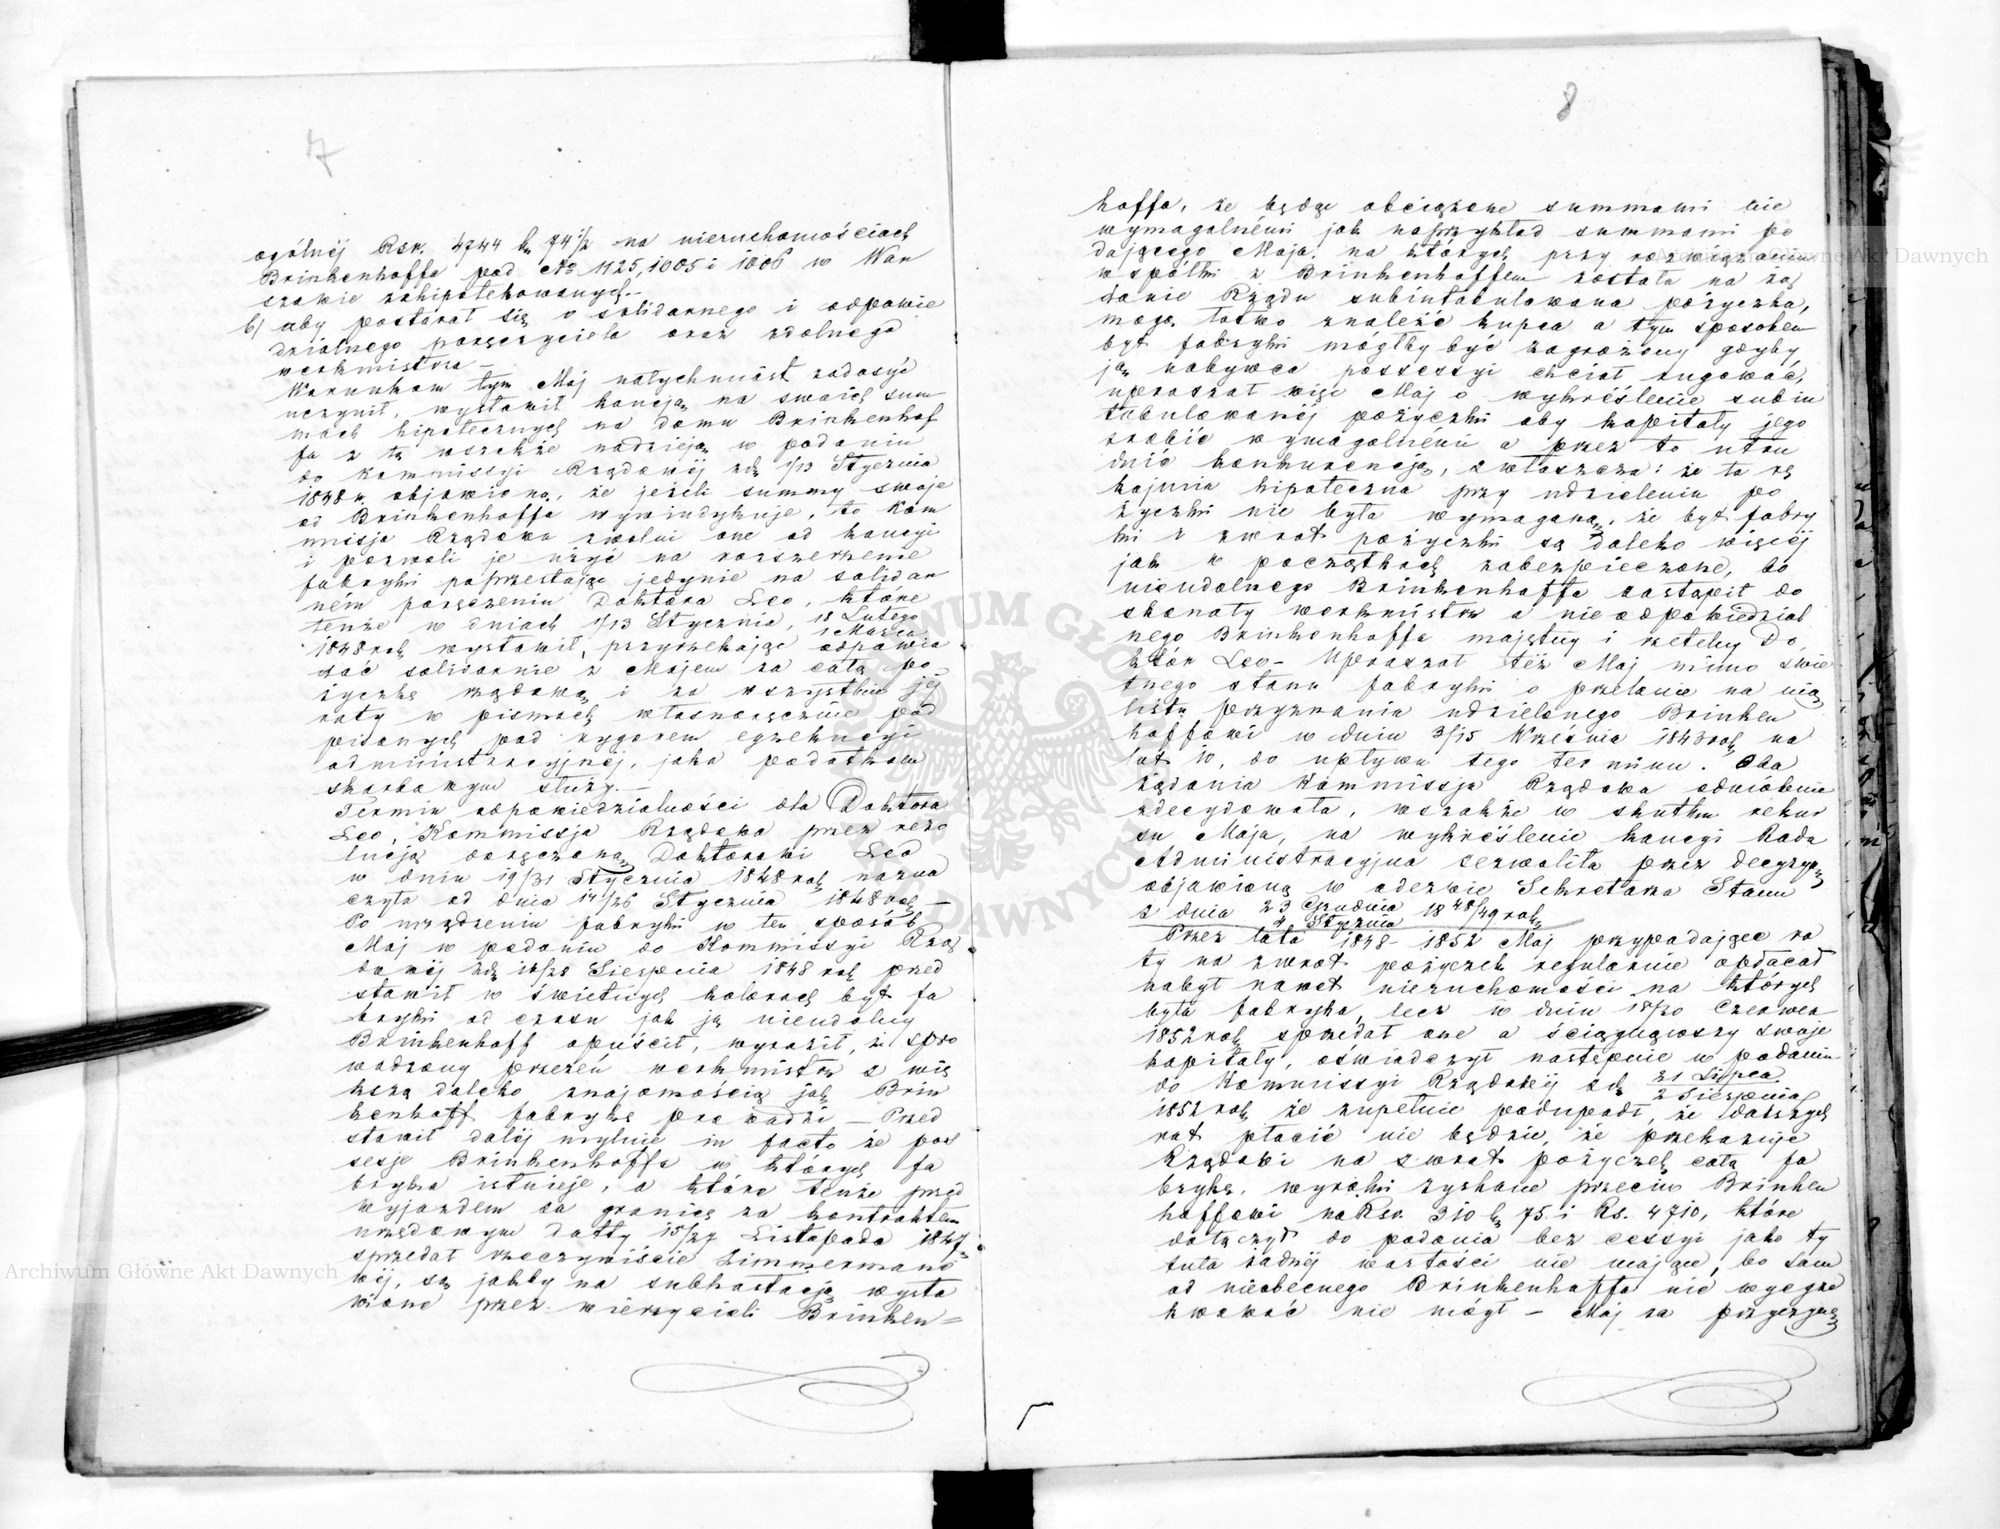 7
ogólnéj Rsr. 4744 k. 74½ na nieruchomościach
Brinkenhoffa pod No 1125, 1005 i 1006 w War
szawie zahipotekowanych.-
b/ aby postarał się o solidarnego i odpowie
dzialnego poręczyciela oraz zdolnego
werkmistrza -
Warunkom tym Maj natychmiast zadosyć
uczynił, wystawił kaucją na swoich sum
mach hipotecznych na domu Brinkenhof
fa z tą wszakże nadzieją w podaniu
do Kommissyi Rządowéj zd. 1/13 Stycznia
1848 r. objawioną, że jeżeli summy swoje
od Brinkenhoffa wywindykuje, to Kom
missja Rządowa zwolni one od kaucyi
i pozwoli je użyć na rozszerzenie
fabryki poprzestając jedynie na solidar
ném poręczeniu Doktora Leo, które
tenże w dniach 1/13 Stycznia, 18 Lutego
1 Marca
1848 rok wystawił, przyrzekając odpowia
dać solidarnie z Majem za całą po
życzkę rządową i za wszystkie jéj
raty w pismach własnoręcznie pod
pisanych pod rygorem egzekucyi
administracyjnéj, jaka podatkom
skarbowym służy.-
Termin odpowiedzialności dla Doktora
Leo, Kommissja Rządowa przez rezo
lucją doręczoną Doktorowi Leo
w dniu 19/31 Stycznia 1848 rok nazna
czyła od dnia 14/26 Stycznia 1848 rok -
Po urządzeniu fabryki w ten sposób
Maj w podaniu do Kommissyi Rzą
dowéj zd. 16/28 Sierpnia 1848 rok przed
stawił w świetnych kolorach byt fa
bryki od czasu jak ją nieudolny
Brinkenhoff opuścił, wyraził, że spro
wadzony przezeń werkmistrz z wię
kszą daleko znajomością jak Brin
kenhoff fabrykę prowadzi - Przed
stawił daléj mylnie in facto że pos
sesje Brinkenhoffa w których fa
bryka istnieje, a które tenże przed
wyjazdem za granicę za kontraktem
urzędowym datty 15/27 Listopada 1847
sprzedał rzeczywiście Zimmermano
wéj, są jakby na subhastacją wysta
wione przez wierzycieli Brinken=
8
hoffa, że będąc obciążone summami nie
wymagalnémi jak naprzykład summami po
dającego Maja, na których przy rozwiązaniu
wspólki z Brinkenhoffem została na żą
danie Rządu subintabulowana pożyczka,
mogą łatwo znaleźć kupca a tym sposobem
byt fabryki mógłby być zagrożony gdyby
ją nabywca possessyi chciał rugować,
upraszał więc Maj o wykréślenie subin
tabulowanéj pożyczki aby kapitały jego
zrobić wymagalnémi a przez to utru
dnić konkurencją, zwłaszcza: że ta rę
kojmia hipoteczna przy udzieleniu po
życzki nie była wymaganą, że byt fabry
ki i zwrot pożyczki są daleko więcéj
jak w początkach zabezpieczone, bo
nieudolnego Brinkenhoffa zastąpił do
skonały werkmistrz a nieodpowiedzial
nego Brinkenhoffa majętny i rzetelny Do
któr Leo - Upraszał też Maj mimo świe
tnego stanu fabryki o przelanie na nią
listu przyznania udzielonego Brinken
hoffowi w dniu 3/15 Września 1843 rok na
lat 10, do upływu tego terminu. Oba
żądania Kommissja Rządowa odmównie
zdecydowała, wszakże w skutku rekur
su Maja, na wykréślenie kaucyi Rada
Administracyjna zezwoliła przez decyzyą
objawioną w odezwie Sekretarza Stanu
z dnia 23 Grudnia 1848/49 rok
4 Stycznia
Przez lata 1848 - 1852 Maj przypadające ra
ty na zwrot pożyczek regularnie opłacał
nabył nawet nieruchomości na których
była fabryka, lecz w dniu 18/30 Czerwca
1852 rok sprzedał one a ściągnąwszy swoje
kapitały, oświadczył następnie w podaniu
do Kommissyi Rządowéj zd. 21 Lipca
2 Sierpnia
1852 rok że zupełnie podupadł, że dalszych
rat płacić nie będzie, że przekazuje
Rządowi na zwrot pożyczek całą fa
brykę, wyroki zyskane przeciw Brinken
hoffowi na Rsr. 310 k. 75. i Rs. 4710, które
dołączył do podania bez cessyi jako ty
tuła żadnéj wartości nie mające, bo sam
od nieobecnego Brinkenhoffa nic wyegze
kwować nie mógł - Maj za przyczynę